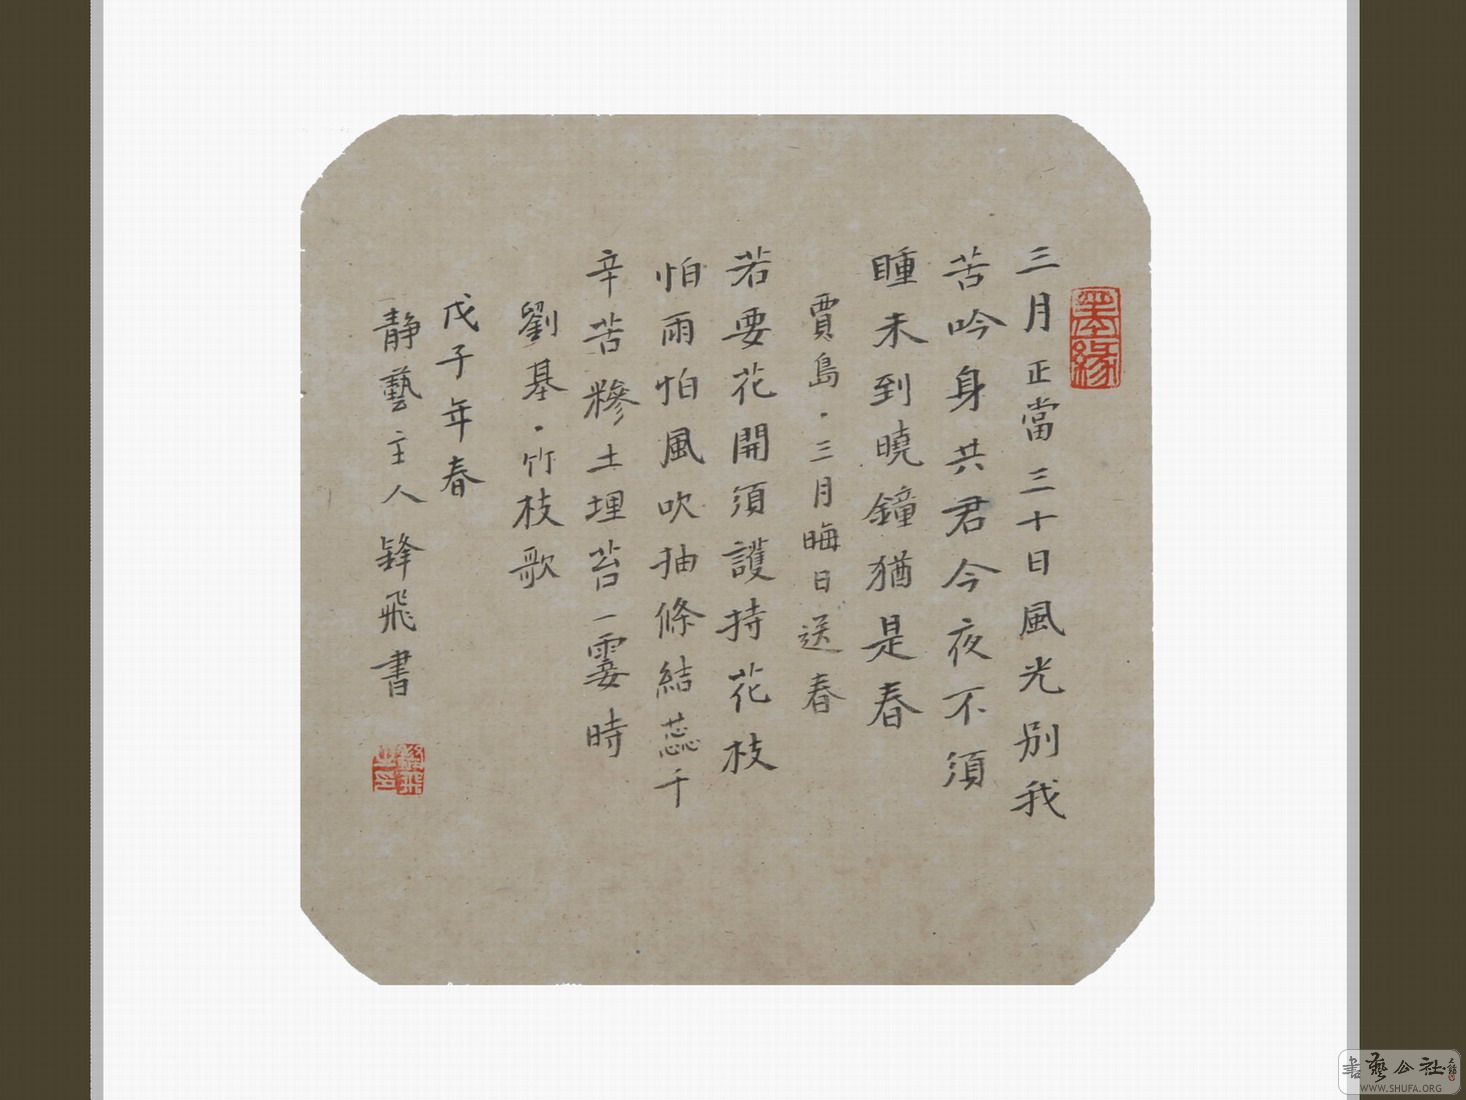 墨緣
三月正當三十日風光別我
苦吟身共君今夜不須
睡未到曉鐘猶是春
賈島·三月晦日送春
若要花開須護持花枝
怕雨怕風吹抽條結蕊千
辛苦糝土埋苔一霎時
劉基·竹枝歌
戊子年春
靜藝主人鋒飛書
鋒飛之印
書藝公社
WWW.SHUFA.ORG